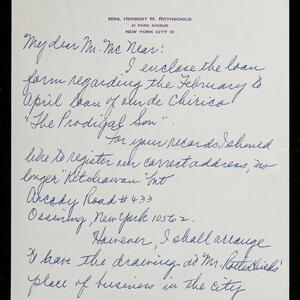 MRS. HERBERT M. ROTHSCHILD
41 PARK AVENUE
NEW YORK CITY 16
My dear Mr. McNear:
I enclose the loan
form regarding the February to
April loan of our de Chirico
"The Prodigal Son".
For your records I should
like to register our correct address, no
longer "Kitchawan" but
Arcady Road #433
Ossining, New York 10562.
However, I shall arrange
to have the drawing at Mr. Rothschilds'
place of business in the city